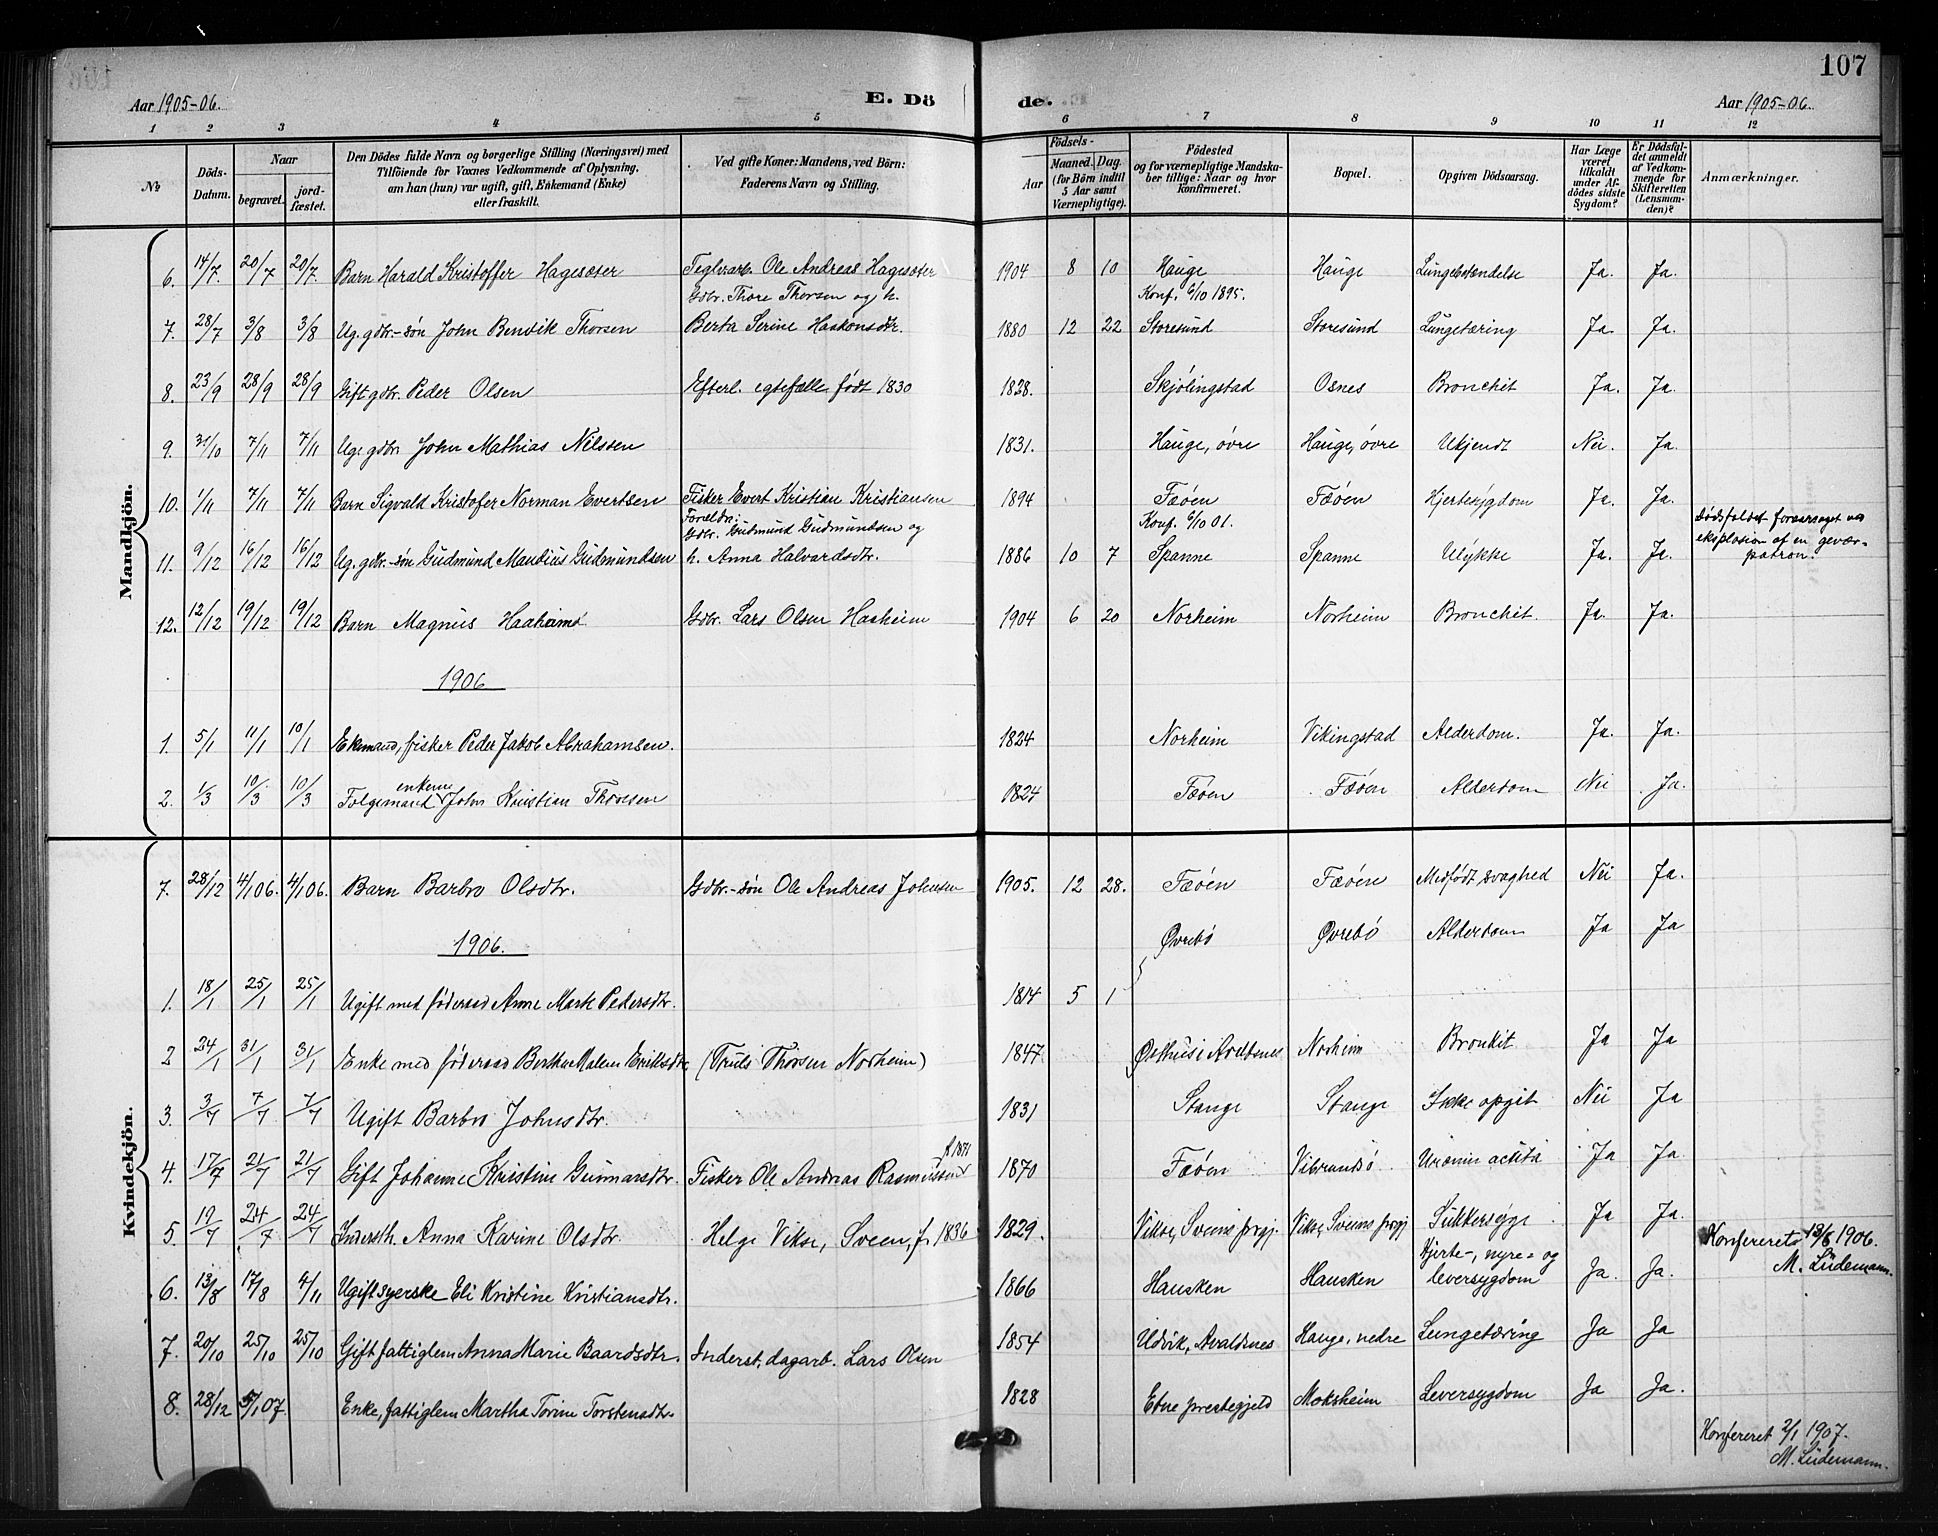 107
Aar 1905-06. E. Dö de. Aar 1905-06.
1 2 3 4 5 6 7 8 9 10 11 12
No Döds-Datum. Naar begravet. jordfæstet. Den Dödes fulde Navn og borgerlige Stilling (Næringsvei) med Tilföiende for Voxnes Vedkommende af Oplysning, om han (hun) var ugift, gift, Enkemand (Enke) eller fraskilt. Ved gifte Koner: Mandens, ved Börn: Faderens Navn og Stilling. Födsels- Aar Maaned. Dag. (for Börn indtil 5 Aar samt Værnepligtige). Födested og for værnepligtige Mandskaber tillige: Naar og hvor konfirmeret. Bopæl. Opgiven Dödsaarsag. Har Læge været tilkaldt under Afdödes sidste Sygdom? Er Dödsfaldet anmeldt af Vedkommende for Skifteretten (Lensmanden)? Anmærkninger.
Mandkjön.
6. 14/7. 20/7 20/7. Barn Harald Kristoffer Hagesæter Teglarb. Ole Andreas Hagesæter 1904 8 10 Hauge Hauge Lungebetændelse Ja. Ja.
Gdbr. Thore Thorsen og h. Konf. 6/10 1895.
7. 28/7 3/8 3/8 Ug. gdbr.-søn John Bendik Thorsen Berta Serine Haakonsdtr. 1880 12 22 Storesund Storesund Lungetæring Ja. Ja.
8. 23/9 28/9 28/9 Gift gdbr. Peder Olsen Efterl. egtefælle født 1830 1828. Skjölingstad Osnes Bronchit Ja. Ja.
9. 31/10 7/11 7/11 Ug. gdbr. John Mathias Nilssen 1831. Hauge, övre Hauge, övre Ukjendt Nei. Ja.
10. 1/11 7/11 7/11 Barn Sigvald Kristofer Norman Evertsen Fisker Evert Kristian Kristiansen 1894 Fæøen Fæøen Hjertesygdom Ja. Ja.
Forældr: Gdbr. Gudmund Gudmundsen og Konf. 6/10 01. Dødsfaldet foraarsaget ved
11. 9/12 16/12 16/12 Ug. gdbr.-søn Gudmund Mandius Gudmundsen h. Anna Halvardsdtr. 1886 10 7 Spanne Spanne Ulykke Ja. Ja. eksplosion af en geværpatron.
12. 12/12 19/12 19/12 Barn Magnus Haaheim Gdbr. Lars Olsen Haaheim 1904 6 20 Norheim Norheim Bronchit. Ja. Ja.
1906
1. 5/1 11/1 10/1 Ekemand, fisker Peder Jakob Abrahamsen. 1824 Norheim Vikingstad Alderdom. Ja. Ja.
2. 1/3 10/3 10/3 Folgemand enkem John Kristian Thorsen 1824 Fæøen Fæøen Alderdom Nei Ja.
Kvindekjön.
7. 28/12 4/1 06. 4/1 06. Barn Barbro Olsdtr. Gdbr.-søn Ole Andreas Johnsen 1905. 12 28. Fæøen Fæøen Medfödt svaghed Nei Ja.
1906. Øvrebö Øvrebö Alderdom Ja Ja
1. 18/1 25/1 25/1 Ugift med föderaad Anne Marte Pedersdtr. 1814 5 1
2 24/1 31/1 31/1 Enke med föderaad Berthe Malene Eriksdtr. (Truls Thorsen Norheim) 1847. Østhus i Avaldsnes Norheim Bronkit Ja Ja
3. 3/7 7/7 7/7 Ugift Barbro Johnsdtr. 1831 Stange Stange Ikke opgit Nei Ja
4. 17/7 21/7 21/7 Gift Johanne Kristine Gunnarsdtr. Fisker Ole Andreas Rasmussen f. 1871 1870 Fæøen Vibrandsö Uræmia acuta Ja Ja
5 19/7 24/7 24/7 Inderst h. Anna Karine Olsdtr. Helge Vikse, Sveen, f. 1836 1829. Vikse, Sveens prgj. Vikse, Sveens prgj Sukkersyge Ja Ja.
Konfereret 13/8 1906.
M. Lüdemann.
6. 13/8 17/8 4/11 Ugift syerske Eli Kristine Kristiansdtr. 1866 Hausken Hausken Hjerte-, nyre- og leversygdom Ja. Ja.
7. 20/10 25/10 25/10 Gift fattiglem Anna Marie Baardsdtr. Inderst, dagarb. Lars Olsen 1854 Udvik, Avaldsnes Hauge, nedre Lungetæring Ja Ja
8. 28/12 5/1 07. Enke, fattiglem Martha Torine Torstensdtr. 1828 Etne prestegjeld Moksheim Leversygdom Ja Ja.
Konfereret 2/1 1907.
M. Lüdemann.